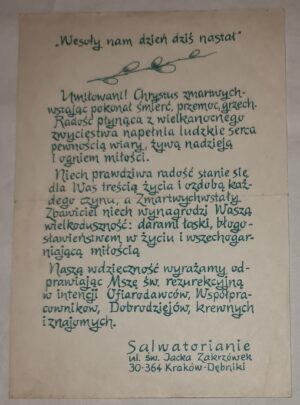 „Wesoły nam dzień dziś nastał"
Umiłowani! Chrystus zmartwych-
wstając pokonał śmierć, przemoc, grzech.
Radość płynąca z wielkanocnego
zwycięstwa napełnia ludzkie serca
pewnością wiary, żywą nadzieją
i ogniem miłości.
Niech prawdziwa radość stanie się
dla Was treścią życia i ozdobą każ-
dego czynu, a Zmartwychwstały
Zbawiciel niech wynagrodzi Waszą
wielkoduszność: darami łaski, błogo-
sławieństwem w życiu i wszechogar-
niającą miłością
Naszą wdzięczność wyrażamy od-
prawiając Mszę św. rezurekcyjną
w intencji Ofiarodawców, Współpra-
cowników, Dobrodziejów, krewnych
i znajomych.
Salwatorianie
ul. św. Jacka Zakrzówek
30-364 Kraków-Dębniki